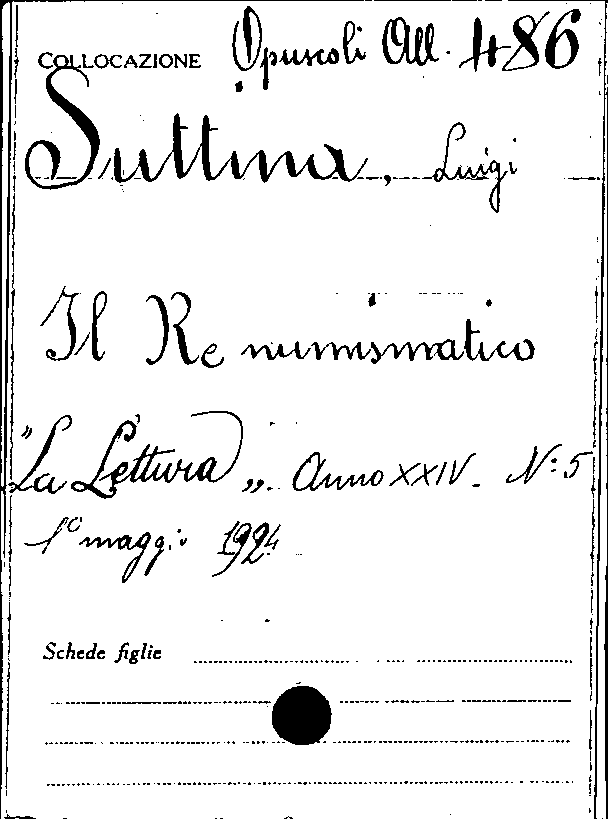 COLLOCAZIONE Opuscoli All. 486
Suttina, Luigi
Il Re numismatico
"La Lettura„. Anno XXIV. N.: 5
1° maggio 1924
Schede figlie